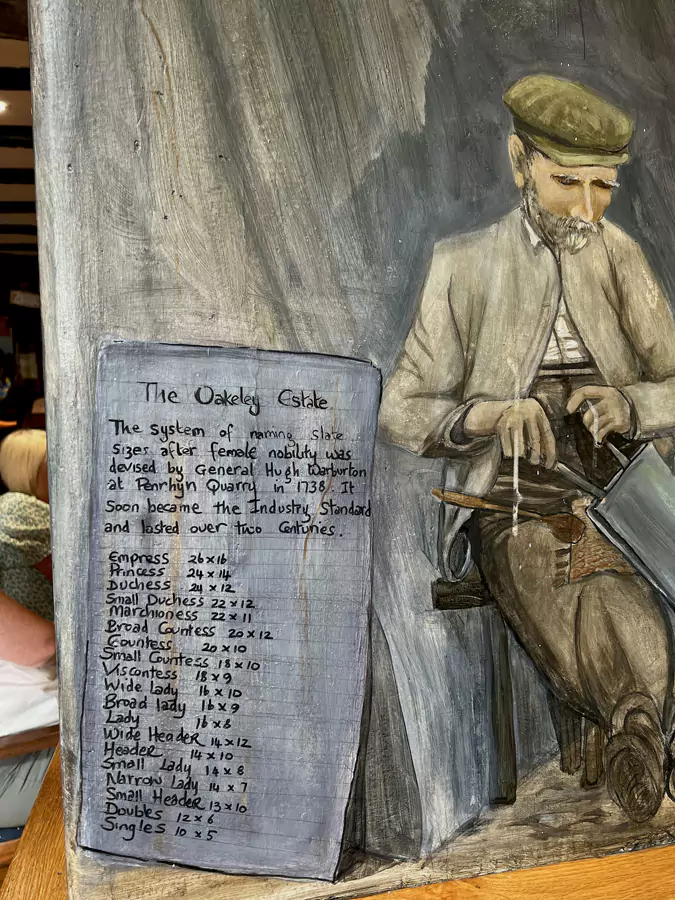 The Oakeley Estate
The system of naming slate
sizes after female nobility was
devised by General Hugh Warburton
at Penrhyn Quarry in 1738. It
soon became the Industry Standard
and lasted over two Centuries.
Empress 26 x 16
Princess 24 x 14
Duchess 24 x 12
Small Duchess 22 x 12
Marchioness 22 x 11
Broad Countess 20 x 12
Countess 20 x 10
Small Countess 18 x 10
Viscontess 18 x 9
Wide lady 16 x 10
Broad lady 16 x 9
Lady 16 x 8
Wide Header 14 x 12
Header 14 x 10
Small Lady 14 x 8
Narrow Lady 14 x 7
Small Header 13 x 10
Doubles 12 x 6
Singles 10 x 5